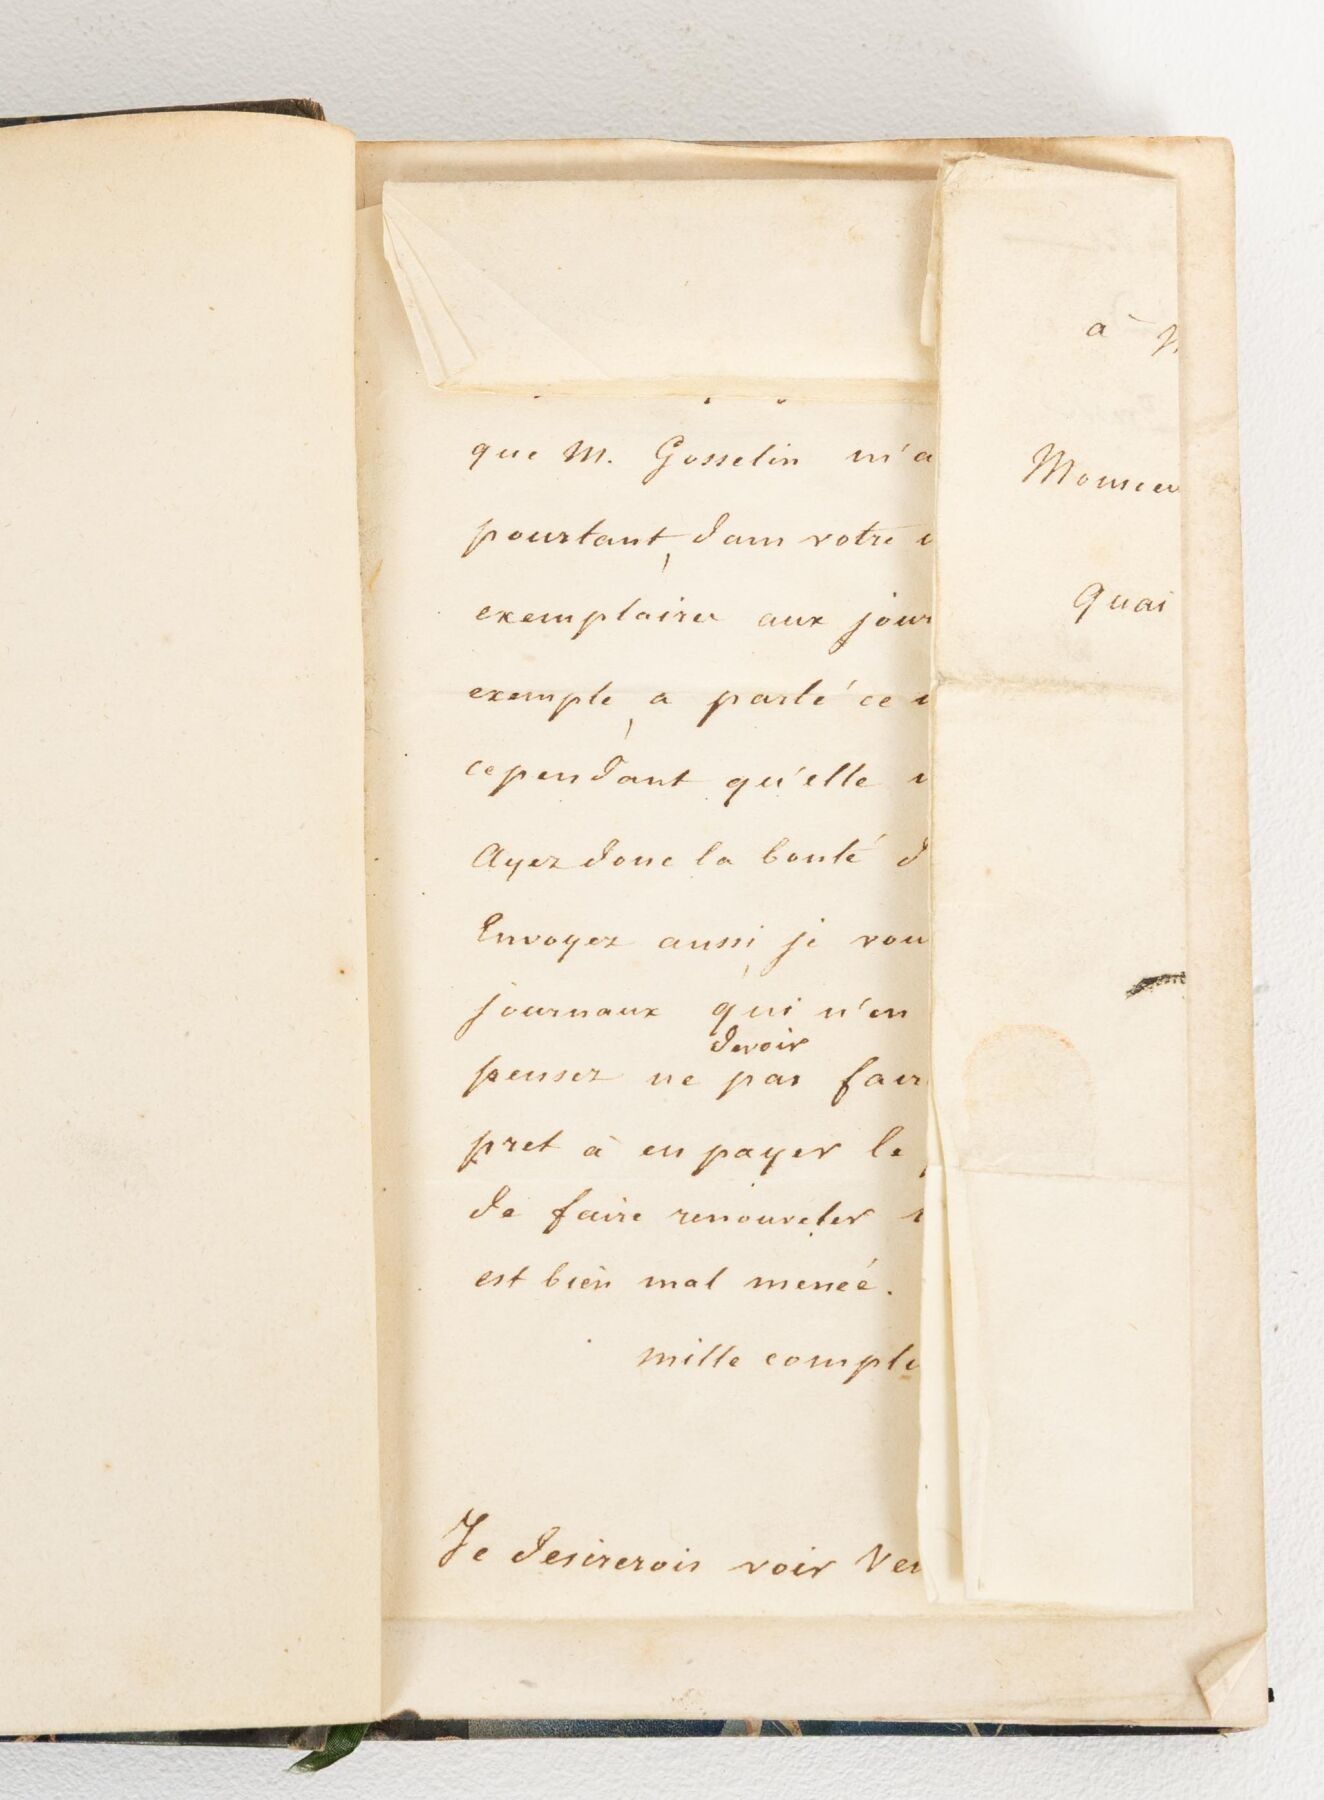 que M. Gosselin m'a
pourtant, dans votre
exemplaires aux jour
exemple, a parlé ce
cependant qu'elle
Ayez donc la bonté d
Envoyez aussi, je vou
journaux qui n'en
devoir
pensez ne pas fair
pret à en payer le
de faire renouveler
est bien mal meneé.
mille compli
Je desirerois voir Ver
à M
Monsieu
Quai